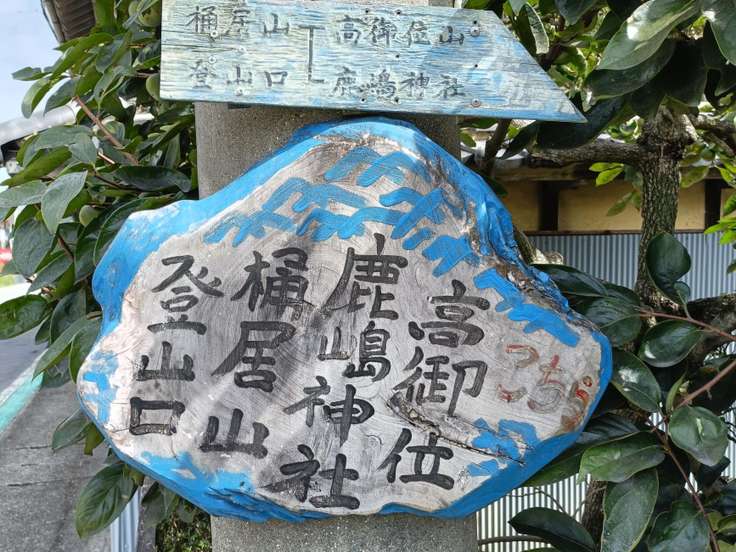 桶居山 高御位山
登山口 鹿嶋神社
こちら
高御位
鹿嶋神社
桶居山
登山口